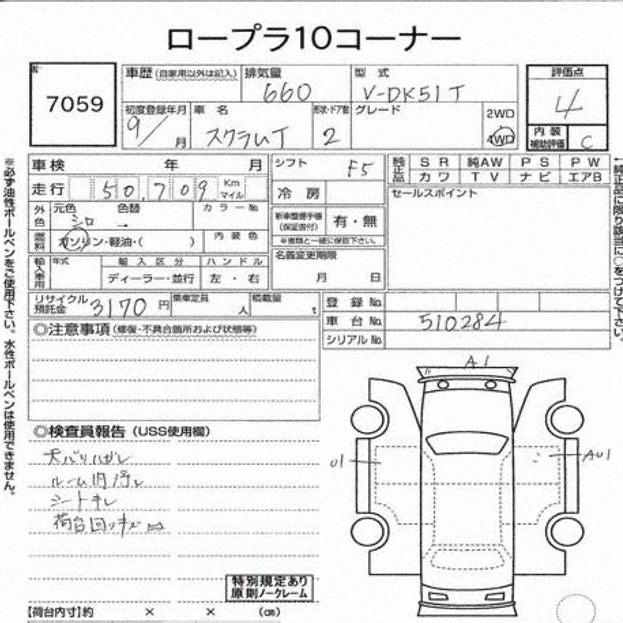 ロープラ10コーナー
№ 7059
車歴 (自家用以外は記入) 排気量 660 型式 V-DK51T
初度登録年月 9/ 月 車名 スクラムT 形状・ドア数 2 グレード 2WD 4WD
評価点 4
内装補助評価 C
車検 年 月
走行 50,709 Km マイル
外色 元色 シロ 色替 → カラー№
燃料 ガソリン・軽油・( ) 内装色
輸入車用 年式 輸入区分 ディーラー・並行 ハンドル 左・右
リサイクル預託金 3170円 乗車定員 人 積載量 t
シフト F5
冷房
新車整備手帳(保証書付) 有・無
※書類と一緒に保管下さい。
名義変更期限
月 日
純正品 SR 純AW PS PW
カワ TV ナビ エアB
セールスポイント
登録№
車台№ 510284
シリアル№
◎注意事項 (修復・不具合箇所および状態等)
◎検査員報告 (USS使用欄)
天バリハガレ
ルーム内汚レ
シートキレ
特別規定あり
原則ノークレーム
【荷台内寸】約 × × (cm)
A1
U1
AU1
※必ず油性ボールペンをご使用下さい。水性ボールペンは使用できません。